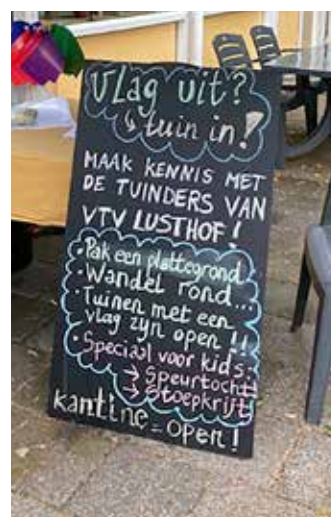 Vlag uit?
↳ tuin in!
MAAK KENNIS MET
DE TUINDERS VAN
VTV LUSTHOF!
• Pak een plattegrond
• Wandel rond...
• Tuinen met een
vlag zijn open!!!
• Speciaal voor kids:
→ Speurtocht!
→ Stoepkrijt!
kantine = open!